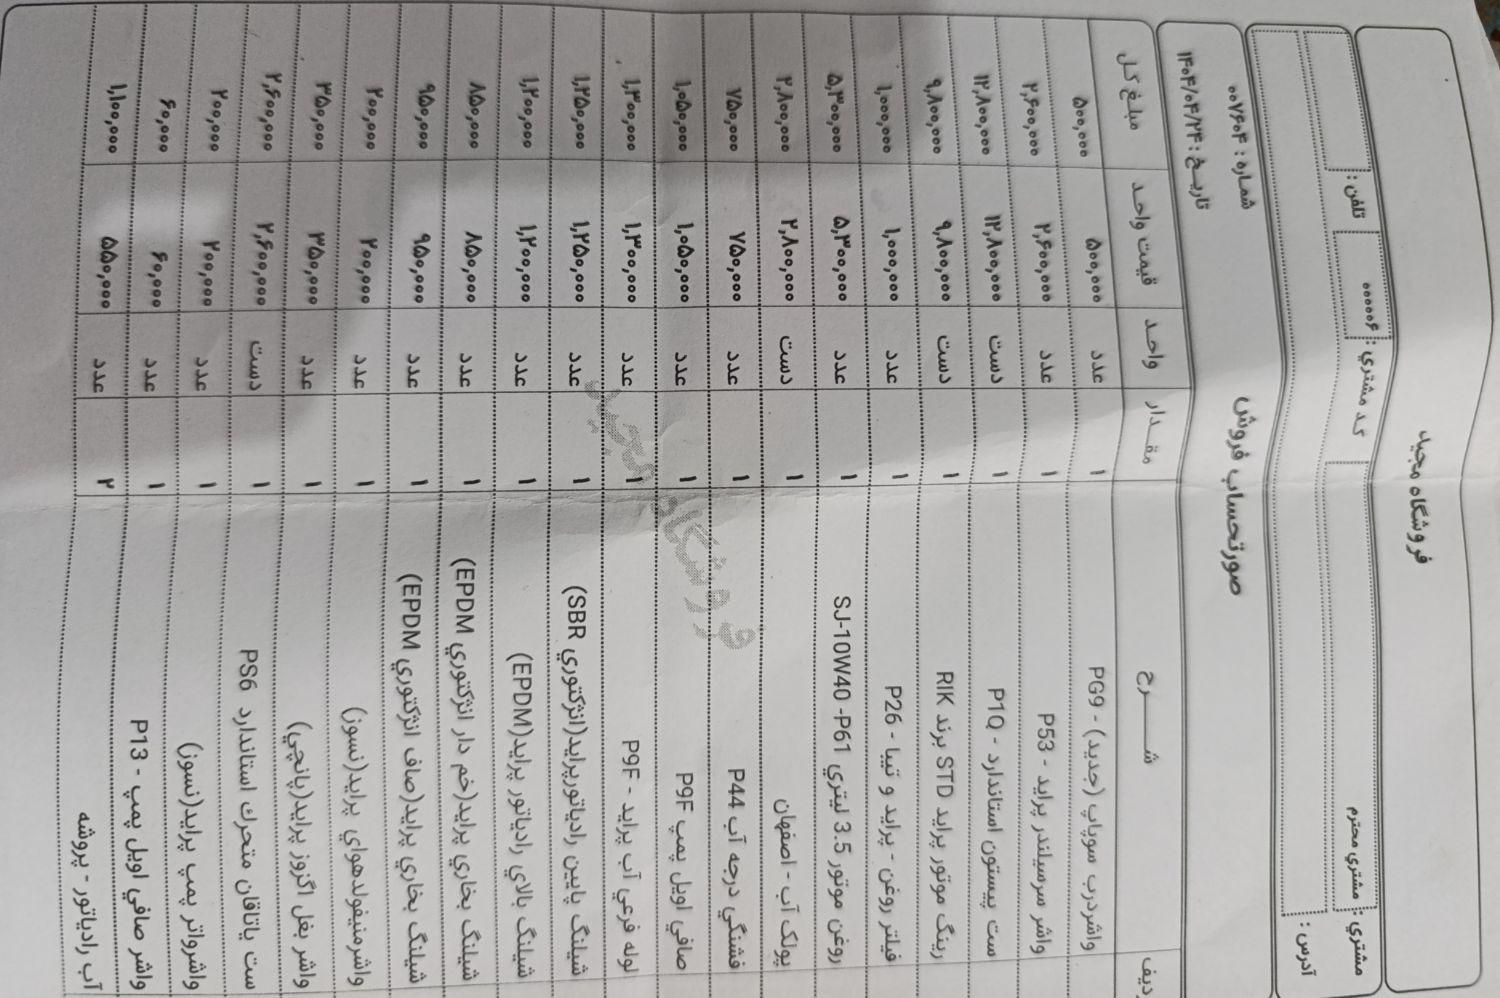 فروشگاه مجید
مشتري : مشتري محترم کد مشتري : ۰۰۰۰۰۶ تلفن :
آدرس :
صورتحساب فروش
شماره : ۰۰۷۶۰۴
تاریخ : ۱۴۰۴/۰۴/۲۴
ردیف شــــرح مقـدار واحـد قیمت واحـد مبلغ کل
واشردرب سوپاپ (جدید) - PG9 ۱ عدد ۵۰۰,۰۰۰ ۵۰۰,۰۰۰
واشر سرسیلندر پراید - P53 ۱ عدد ۲,۶۰۰,۰۰۰ ۲,۶۰۰,۰۰۰
ست پیستون استاندارد - P1Q ۱ دست ۱۲,۸۰۰,۰۰۰ ۱۲,۸۰۰,۰۰۰
رینگ موتور پراید STD برند RIK ۱ دست ۹,۸۰۰,۰۰۰ ۹,۸۰۰,۰۰۰
فیلتر روغن - پراید و تیبا - P26 ۱ عدد ۱,۰۰۰,۰۰۰ ۱,۰۰۰,۰۰۰
روغن موتور 3.5 لیتري SJ-10W40 -P61 ۱ عدد ۵,۳۰۰,۰۰۰ ۵,۳۰۰,۰۰۰
پولک آب - اصفهان ۱ دست ۲,۸۰۰,۰۰۰ ۲,۸۰۰,۰۰۰
فشنگي درجه آب P44 ۱ عدد ۷۵۰,۰۰۰ ۷۵۰,۰۰۰
صافي اویل پمپ P9F ۱ عدد ۱,۰۵۰,۰۰۰ ۱,۰۵۰,۰۰۰
لوله فرعي آب پراید - P9F ۱ عدد ۱,۳۰۰,۰۰۰ ۱,۳۰۰,۰۰۰
شیلنگ پایین رادیاتورپراید(انژکتوري SBR) ۱ عدد ۱,۲۵۰,۰۰۰ ۱,۲۵۰,۰۰۰
شیلنگ بالاي رادیاتور پراید(EPDM) ۱ عدد ۱,۲۰۰,۰۰۰ ۱,۲۰۰,۰۰۰
شیلنگ بخاري پراید(خم دار انژکتوري EPDM) ۱ عدد ۸۵۰,۰۰۰ ۸۵۰,۰۰۰
شیلنگ بخاري پراید(صاف انژکتوري EPDM) ۱ عدد ۹۵۰,۰۰۰ ۹۵۰,۰۰۰
واشرمنیفولدهواي پراید(نسوز) ۱ عدد ۲۰۰,۰۰۰ ۲۰۰,۰۰۰
واشر بغل اگزوز پراید(پانچي) ۱ عدد ۳۵۰,۰۰۰ ۳۵۰,۰۰۰
ست یاتاقان متحرك استاندارد PS6 ۱ دست ۲,۶۰۰,۰۰۰ ۲,۶۰۰,۰۰۰
واشرواتر پمپ پراید(نسوز) ۱ عدد ۲۰۰,۰۰۰ ۲۰۰,۰۰۰
واشر صافي اویل پمپ - P13 ۱ عدد ۶۰,۰۰۰ ۶۰,۰۰۰
آب رادیاتور - پروشه ۲ عدد ۵۵۰,۰۰۰ ۱,۱۰۰,۰۰۰
فروشگاه مجید